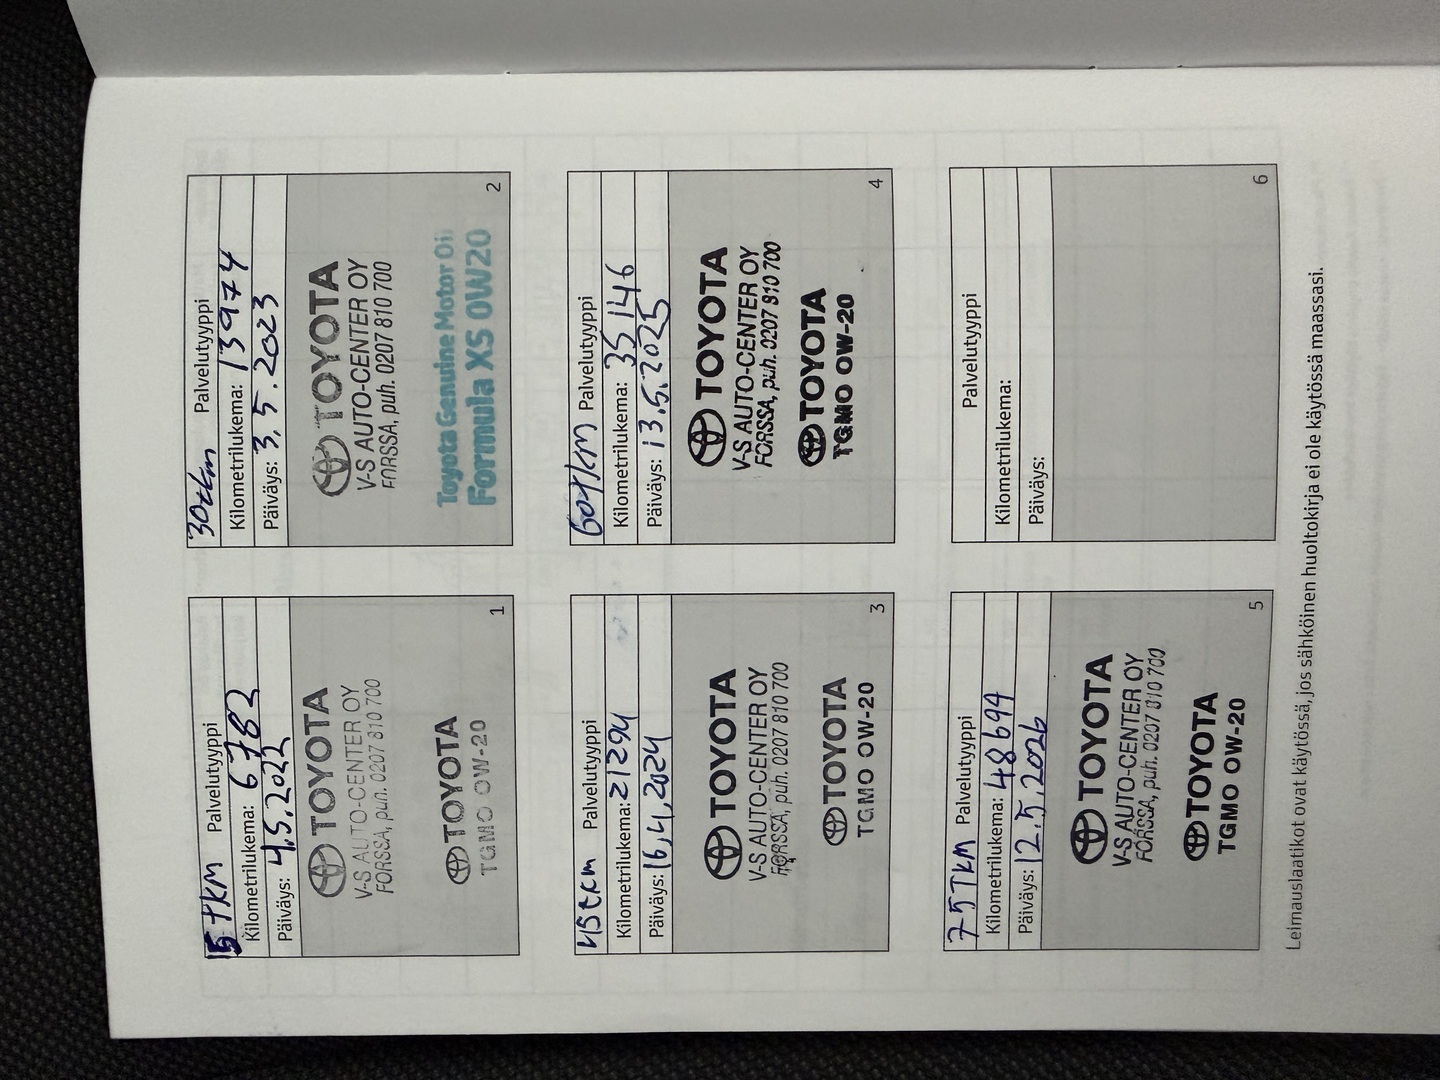 15 tkm Palvelutyyppi
Kilometrilukema: 6782
Päiväys: 4.5.2022
TOYOTA
V-S AUTO-CENTER OY
FORSSA, puh. 0207 810 700
TOYOTA
TGMO 0W-20
1
30tkm Palvelutyyppi
Kilometrilukema: 13974
Päiväys: 3.5.2023
TOYOTA
V-S AUTO-CENTER OY
FORSSA, puh. 0207 810 700
Toyota Genuine Motor Oil
Formula XS 0W20
2
45tkm Palvelutyyppi
Kilometrilukema: 21294
Päiväys: 16.4.2024
TOYOTA
V-S AUTO-CENTER OY
FORSSA, puh. 0207 810 700
TOYOTA
TGMO 0W-20
3
60tkm Palvelutyyppi
Kilometrilukema: 35146
Päiväys: 13.5.2025
TOYOTA
V-S AUTO-CENTER OY
FORSSA, puh. 0207 810 700
TOYOTA
TGMO 0W-20
4
75TKM Palvelutyyppi
Kilometrilukema: 48694
Päiväys: 12.5.2026
TOYOTA
V-S AUTO-CENTER OY
FORSSA, puh. 0207 810 700
TOYOTA
TGMO 0W-20
5
Palvelutyyppi
Kilometrilukema:
Päiväys:
6
Leimauslaatikot ovat käytössä, jos sähköinen huoltokirja ei ole käytössä maassasi.